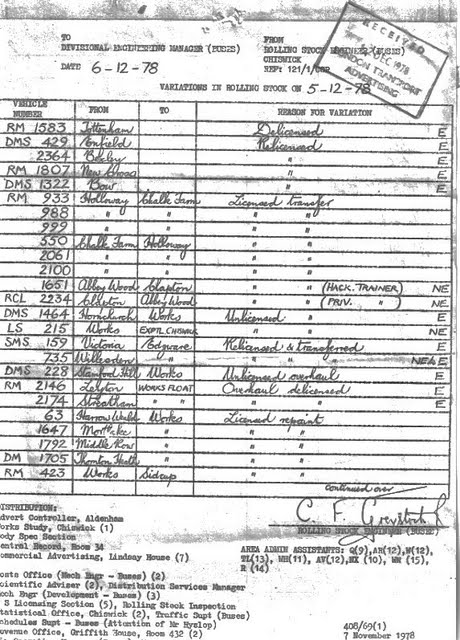 TO
DIVISIONAL ENGINEERING MANAGER (BUSES)
DATE 6-12-78
FROM
ROLLING STOCK ENGINEER (BUSES)
CHISWICK
REF: 121/1/
RECEIVED
DEC 1978
LONDON TRANSPORT
ADVERTISING
VARIATIONS IN ROLLING STOCK ON 5-12-78
VEHICLE NUMBER FROM TO REASON FOR VARIATION
RM 1583 Tottenham Delicensed E
DMS 429 Enfield Relicensed E
2364 Bexley " E
RM 1807 New Cross " E
DMS 1322 Bow " E
RM 933 Holloway Chalk Farm Licensed transfer
988 " " " "
999 " " " "
550 Chalk Farm Holloway " "
2061 " " " "
2100 " " " "
1651 Abbey Wood Clapton " " (HACK. TRAINER) NE
RCL 2234 Clapton Abbey Wood " " (PRIV. " ) NE
DMS 1464 Hornchurch Works Unlicensed " E
LS 215 Works EXPTL CHISWICK " " NE
SMS 159 Victoria Edgware Relicensed & transferred E
735 Willesden " " " "
DMS 228 Stamford Hill Works Unlicensed overhaul E
RM 2146 Leyton WORKS FLOAT Overhaul delicensed E
2174 Streatham " " " E
63 Harrow Weald Works Licensed repaint
1647 Mortlake " " "
1792 Middle Row " " "
DM 1705 Thornton Heath " " "
RM 423 Works Sidcup " "
continued over
C. F. Greystock
ROLLING STOCK ENGINEER (BUSES)
DISTRIBUTION:
dvert Controller, Aldenham
orks Study, Chiswick (1)
ody Spec Section
entral Record, Room 34
ommercial Advertising, Lindsay House (7)
AREA ADMIN ASSISTANTS: Q(9),AR(12),W(12),
TL(13), MH(11), AV(12),HX (10), WN (15),
R (14)
osts Office (Mech Engr - Buses) (2)
cientific Adviser (2), Distribution Services Manager
ech Engr (Development - Buses) (3)
S Licensing Section (5), Rolling Stock Inspection
tatistical Office, Chiswick (2), Traffic Supt (Buses)
chedules Supt - Buses (Attention of Mr Hyslop)
evenue Office, Griffith House, Room 432 (2)
408/69(1)
7 November 1978